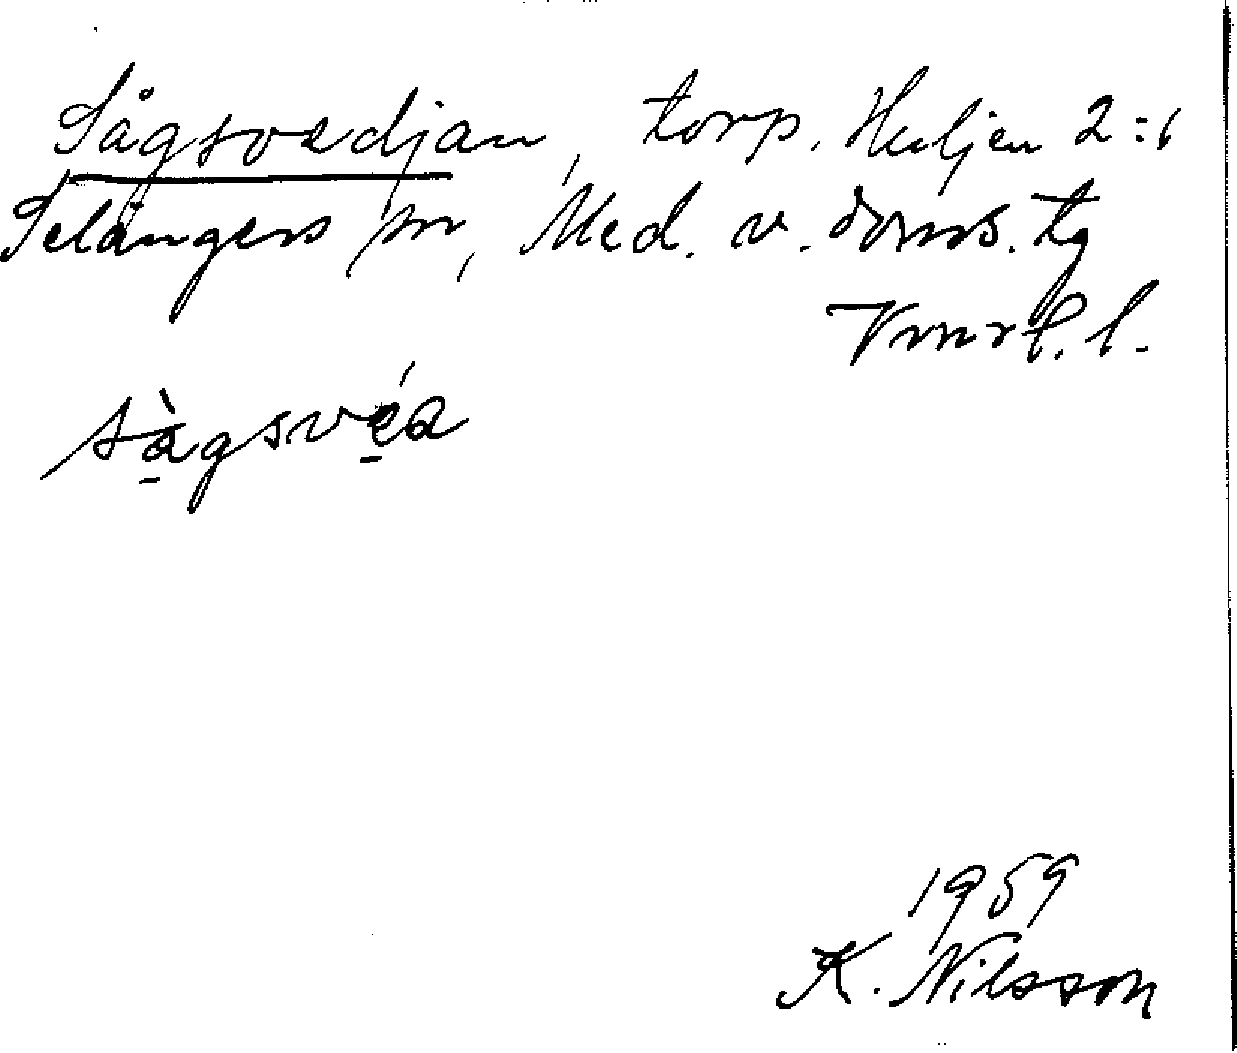 Sågsvedjan, torp. Huljen 2:1
Selångers sn, Med. v. doms. tg
Vmrl. l.
sàgsvéa
1959
K. Nilsson